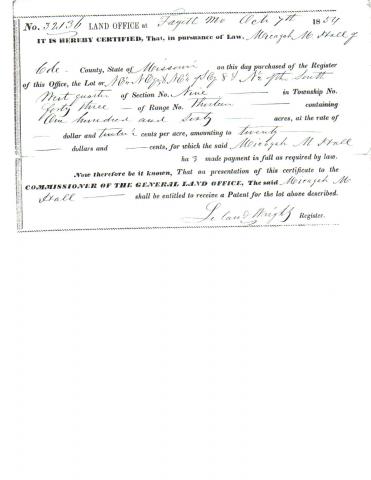 No. 32136 LAND OFFICE at Fayett Mo Octo 7th 1854
IT IS HEREBY CERTIFIED, That, in pursuance of Law, Micajah M Hall of
Cole County, State of Missouri on this day purchased of the Register
of this Office, the Lot or of the South
West quarter of Section No. Nine in Township No.
Forty Three of Range No. Thirteen containing
One hundred and Sixty acres, at the rate of
dollar and twelve ½ cents per acre, amounting to twenty
dollars and cents, for which the said Micajah M Hall
ha s made payment in full as required by law.
Now therefore be it known, That on presentation of this certificate to the
COMMISSIONER OF THE GENERAL LAND OFFICE, The said Micajah M
Hall shall be entitled to receive a Patent for the lot above described.
Leland Wright Register.